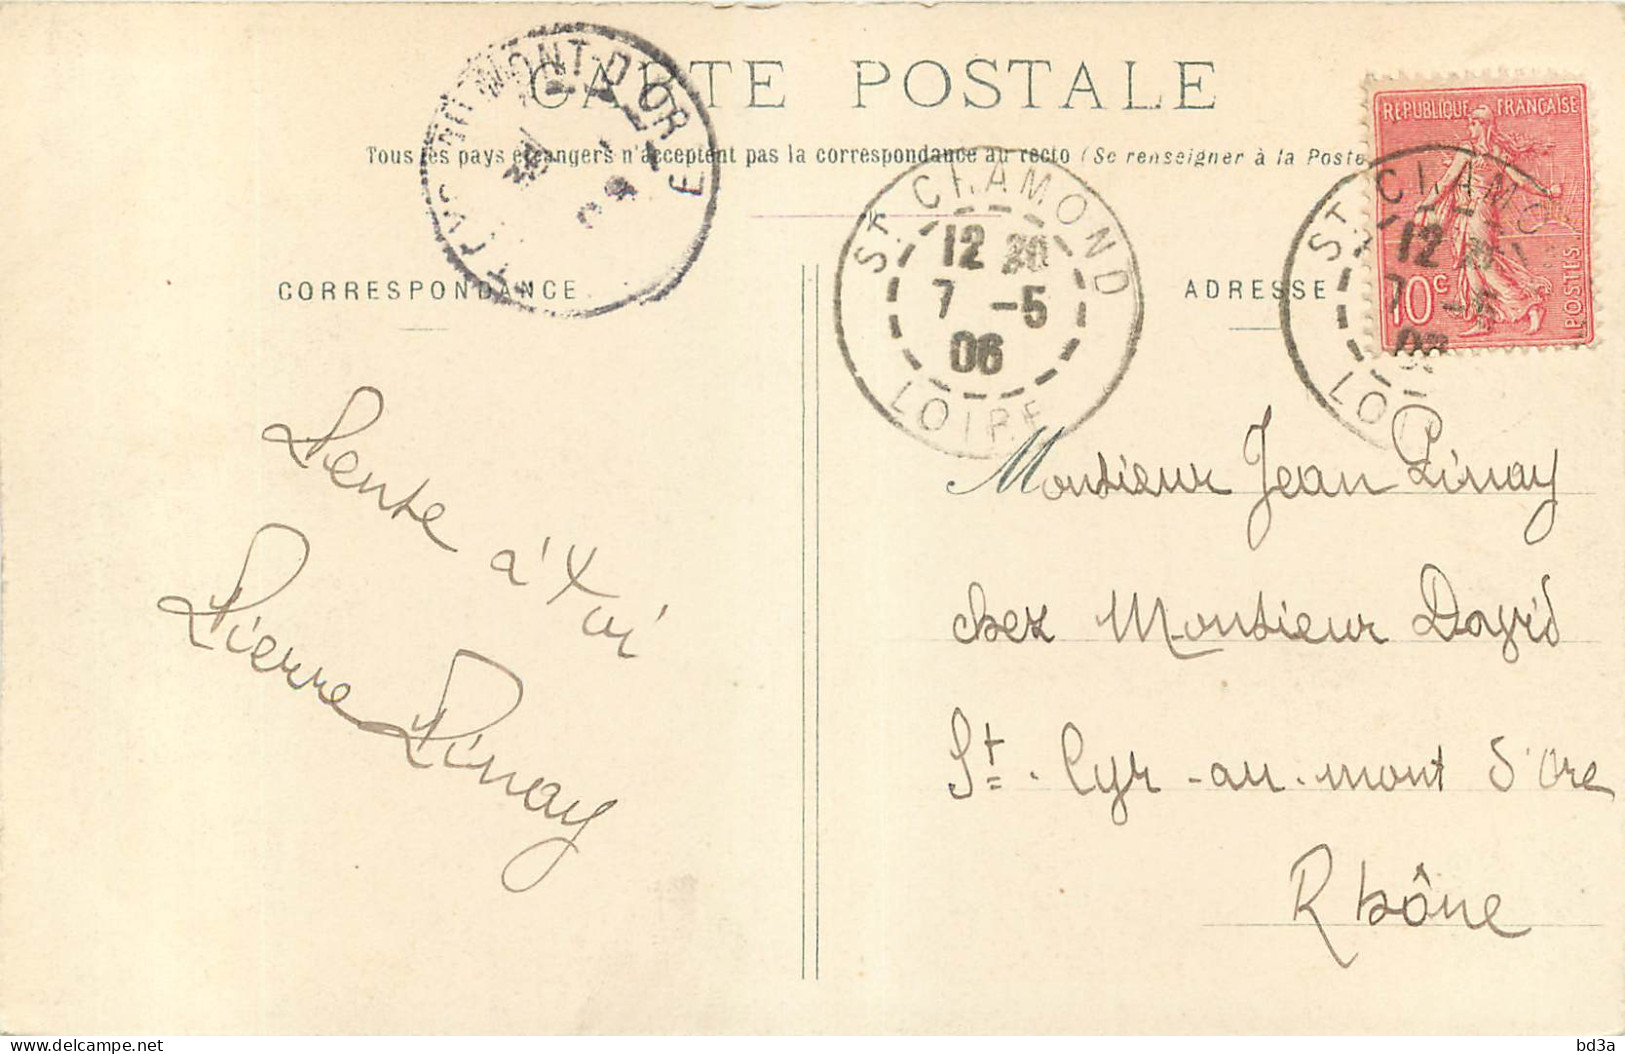 CARTE POSTALE
Tous les pays étrangers n'acceptent pas la correspondance au recto (Se renseigner à la Poste
MONT-D'OR
ST CHAMOND
12 20
7 -5
06
LOIRE
ST CHAMO
12
7 -5
LO
RÉPUBLIQUE FRANÇAISE
10c
POSTES
CORRESPONDANCE
ADRESSE
Pente à toi
Pierre Pinay
Monsieur Jean Pinay
chez Monsieur David
St-Cyr-au-mont d'Ore
Rhône
bd3a